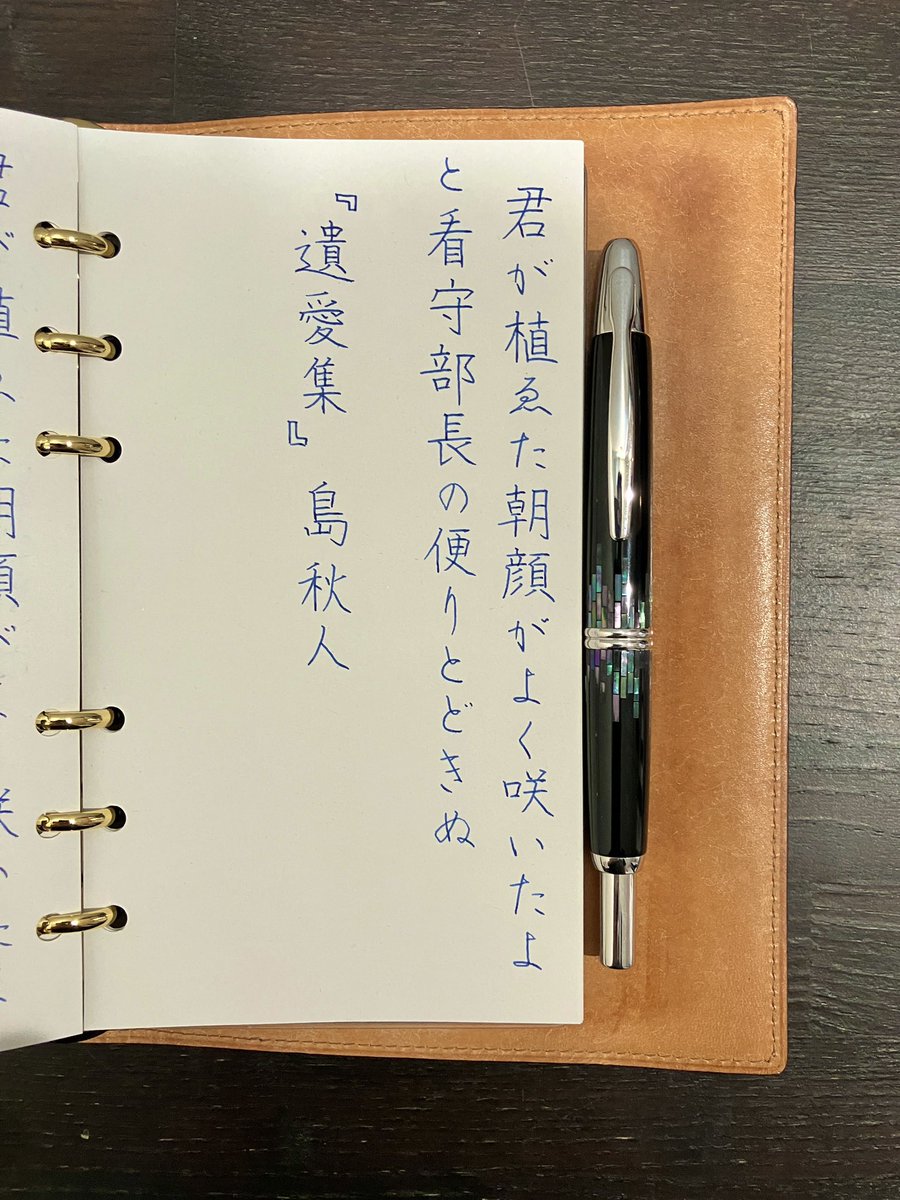 君が植ゑた朝顔がよく咲いたよ
と看守部長の便りとどきぬ
『遺愛集』 島秋人